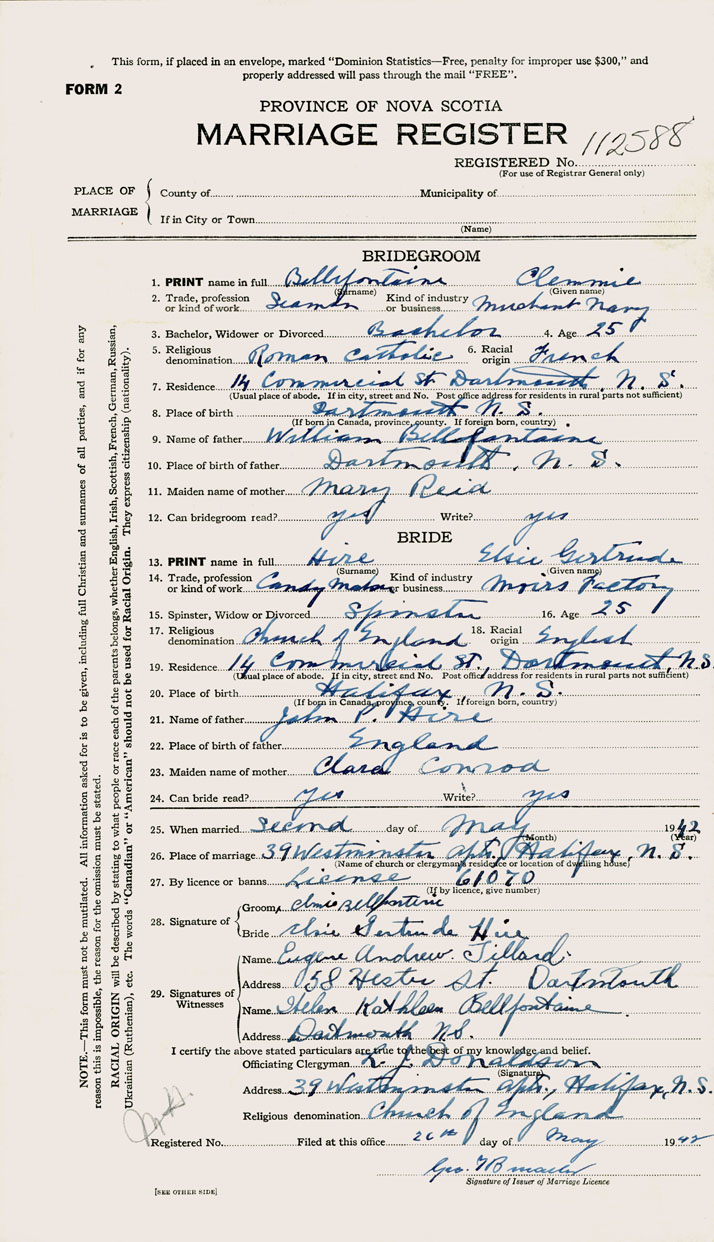 This form, if placed in an envelope, marked "Dominion Statistics—Free, penalty for improper use $300," and
properly addressed will pass through the mail "FREE".
FORM 2
PROVINCE OF NOVA SCOTIA
MARRIAGE REGISTER
REGISTERED No. 112588
(For use of Registrar General only)
PLACE OF MARRIAGE
County of Municipality of
If in City or Town
(Name)
BRIDEGROOM
1. PRINT name in full Bellefontaine Clemmie
(Surname) (Given name)
2. Trade, profession or kind of work Seaman Kind of industry or business Merchant Navy
3. Bachelor, Widower or Divorced Bachelor 4. Age 25
5. Religious denomination Roman Catholic 6. Racial origin French
7. Residence 14 Commercial St Dartmouth, N. S.
(Usual place of abode. If in city, street and No. Post office address for residents in rural parts not sufficient)
8. Place of birth Dartmouth N. S.
(If born in Canada, province, county. If foreign born, country)
9. Name of father William Bellefontaine
10. Place of birth of father Dartmouth, N. S.
11. Maiden name of mother Mary Reid
12. Can bridegroom read? yes Write? yes
BRIDE
13. PRINT name in full Hire Elsie Gertrude
(Surname) (Given name)
14. Trade, profession or kind of work Candy Maker Kind of industry or business Moirs Factory
15. Spinster, Widow or Divorced Spinster 16. Age 25
17. Religious denomination Church of England 18. Racial origin English
19. Residence 14 Commercial St., Dartmouth, N.S.
(Usual place of abode. If in city, street and No. Post office address for residents in rural parts not sufficient)
20. Place of birth Halifax, N. S.
(If born in Canada, province, county. If foreign born, country)
21. Name of father John P. Hire
22. Place of birth of father England
23. Maiden name of mother Clara Conrod
24. Can bride read? Yes Write? yes
25. When married Second day of May 1942
(Month) (Year)
26. Place of marriage 39 Westminster Apts., Halifax, N. S.
(Name of church or clergyman's residence or location of dwelling house)
27. By licence or banns License 61070
(If by licence, give number)
28. Signature of
Groom Bellfontaine
Bride Elsie Gertrude Hire
29. Signatures of Witnesses
Name Eugene Andrew Tillard
Address 58 Hester St. Dartmouth
Name Helen Kathleen Bellfontaine
Address Dartmouth N.S.
I certify the above stated particulars are true to the best of my knowledge and belief.
Officiating Clergyman L. J. Donaldson
(Signature)
Address 39 Westminster Apts., Halifax, N.S.
Religious denomination Church of England
Registered No. Filed at this office 26th day of May 1942
Signature of Issuer of Marriage Licence
[SEE OTHER SIDE]
NOTE.—This form must not be mutilated. All information asked for is to be given, including full Christian and surnames of all parties, and if for any
reason this is impossible, the reason for the omission must be stated.
RACIAL ORIGIN will be described by stating to what people or race each of the parents belongs, whether English, Irish, Scottish, French, German, Russian,
Ukrainian (Ruthenian), etc. The words "Canadian" or "American" should not be used for Racial Origin. They express citizenship (nationality).